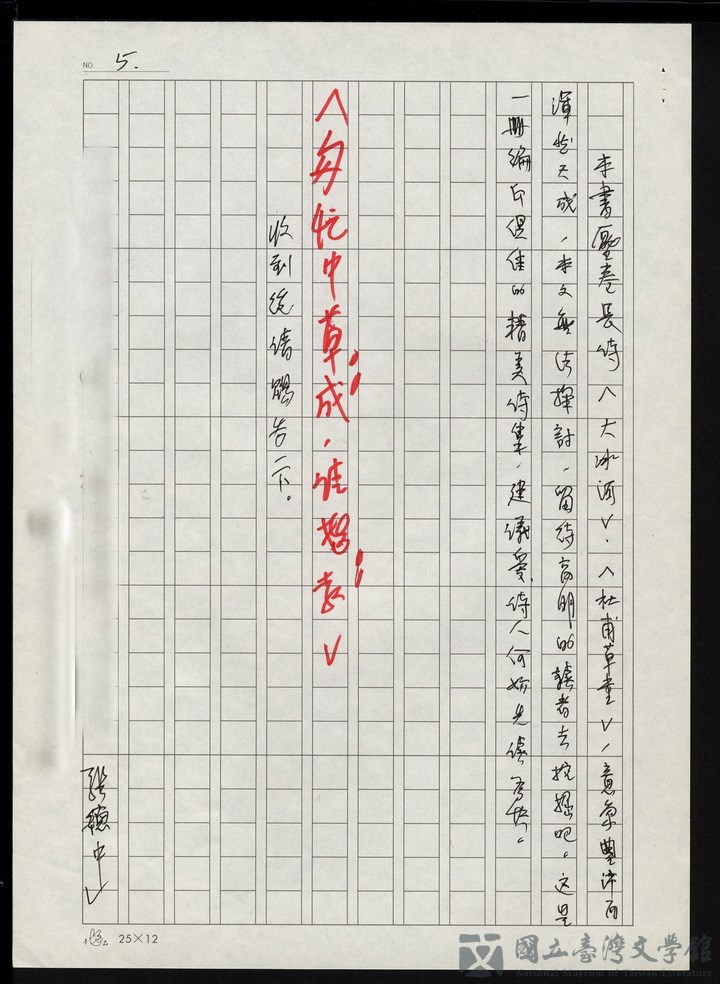 NO. 5.
本書壓卷長詩〈大冰河〉、〈杜甫草堂〉，意象豐沛而
渾然天成，本文無法探討，留待高明的讀者去挖掘吧。这是
一冊編印俱佳的精美詩集，建議愛詩人何妨先讀為快。
〈匆忙中草成，唯
收到後請賜告一下。
張德中
25×12
國立臺灣文學館
National Museum of Taiwan Literature